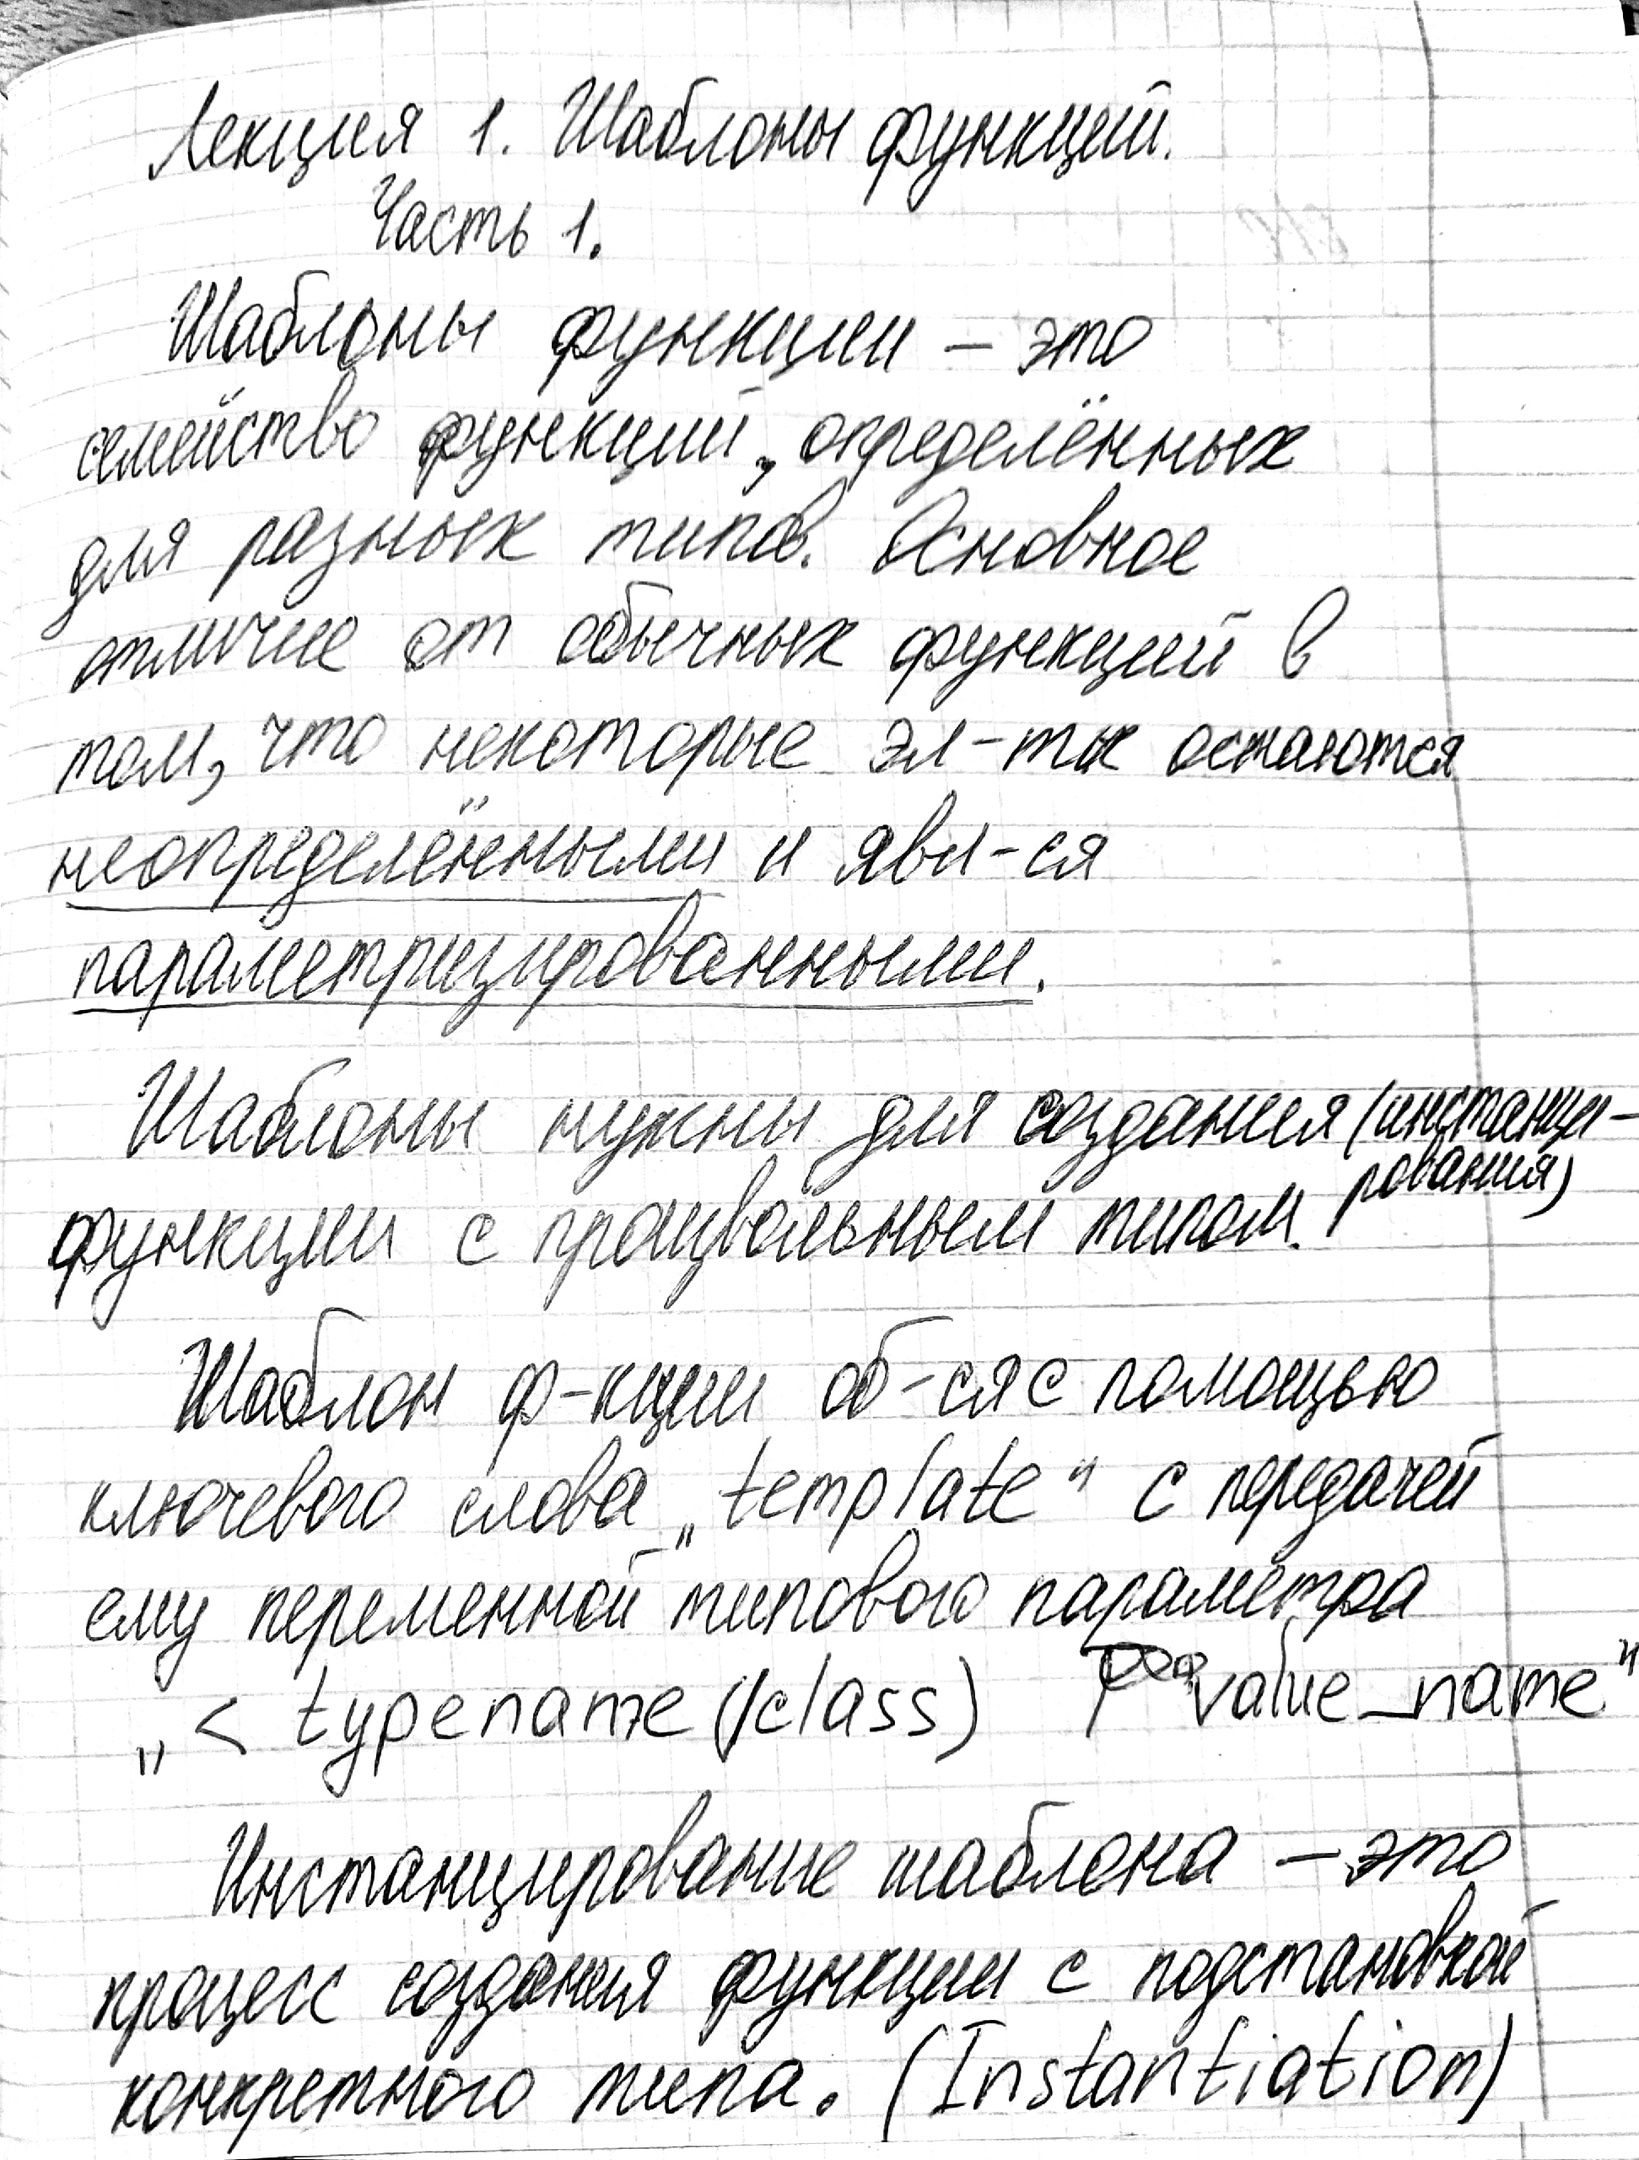 Лекция 1. Шаблоны функций.
Часть 1.
Шаблоны функции – это
семейство функций, определённых
для разных типов. Основное
отличие от обычных функций в
том, что некоторые эл-ты остаются
неопределёнными и явл-ся
параметризированными.
Шаблоны нужны для создания (инстанци-
рования)
функции с произвольным типом.
Шаблон ф-кции об-ся с помощью
ключевого слова „template" с передачей
ему переменной типового параметра
„< typename (/class) value_name"
Инстанцирование шаблона – это
процесс создания функции с подстановкой
конкретного типа. (Instantiation)